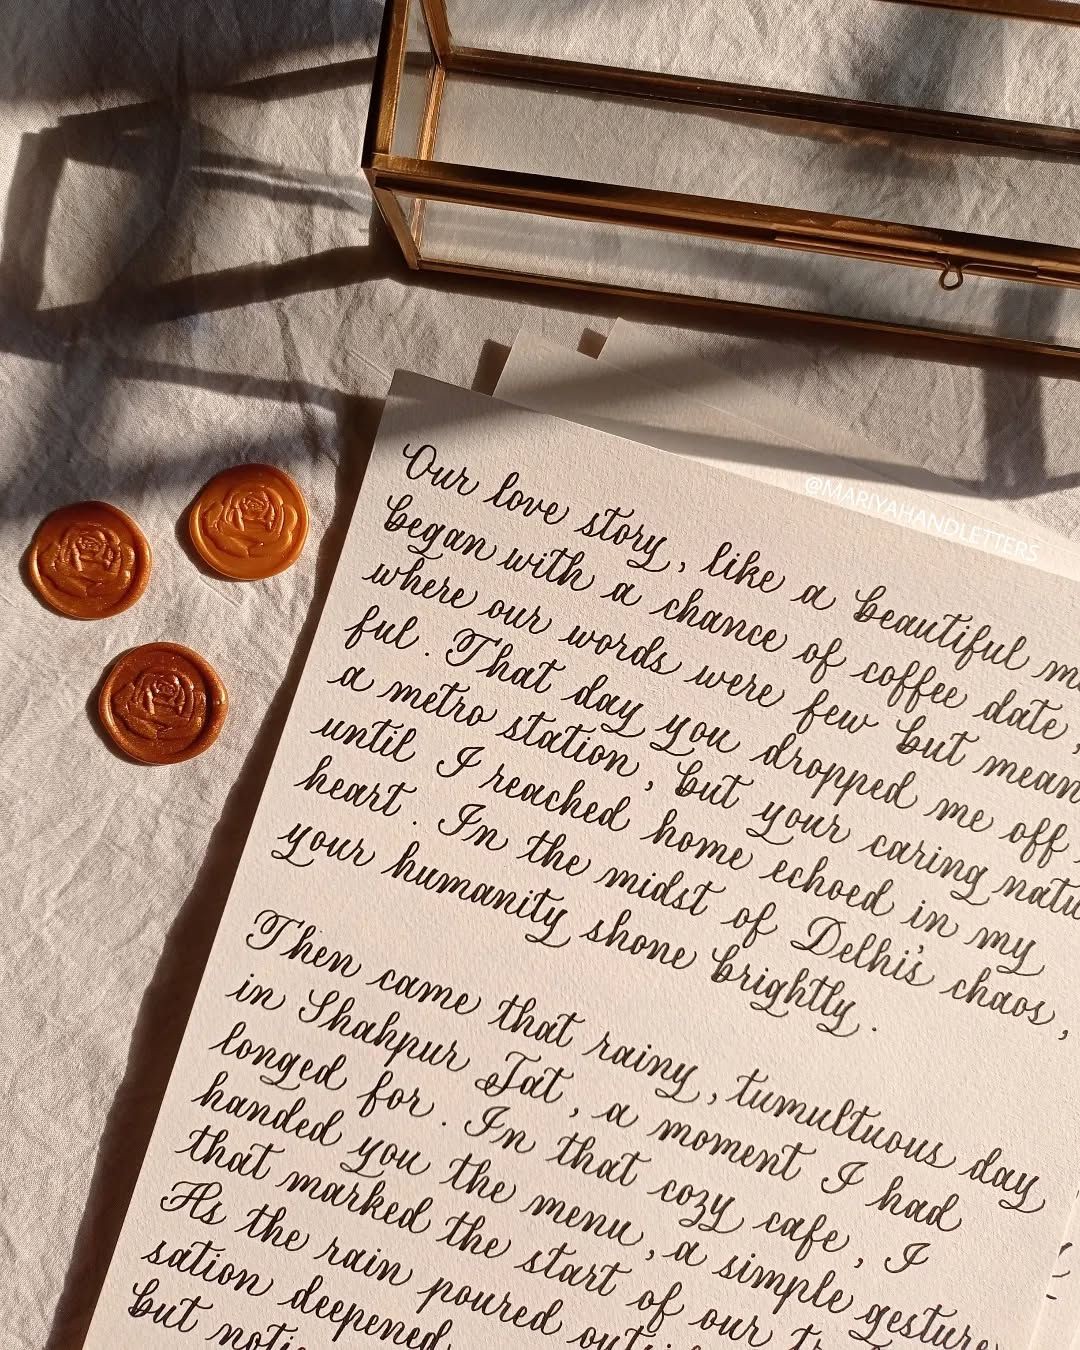 @MARIYAHANDLETTERS
Our love story, like a beautiful
began with a chance of coffee date,
where our words were few but mean
ful. That day you dropped me off
a metro station, but your caring natu
until I reached home echoed in my
heart. In the midst of Delhi's chaos,
your humanity shone brightly.
Then came that rainy, tumultuous day
in Shahpur Jat, a moment I had
longed for. In that cozy cafe, I
handed you the menu, a simple gesture
that marked the start of our
As the rain poured
sation deepened
but